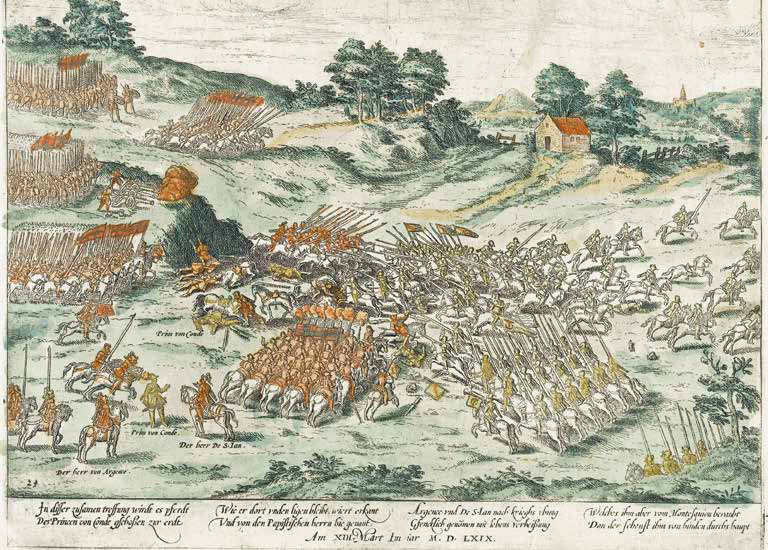 Prins von Conde
Prins von Conde.
Der herr De S. Ian.
Der herr von Argence.
21
In disser zusamen treffung wirdt es pferdt
Des Princen von Conde gschoßen zur erdt
Wie er dort unden ligen bleibt, wiert erkant
Vnd von den Papistischen herrn hie genant
Argence vnd De S. Ian nach krieghs vbung
Gfencklich genomen mit lebens verheissung
Welches ihm aber vom Montesquiou beraubt
Dan der scheust ihm von hinden durchs haupt
Am XIII Mart Im iar M. D. LXIX.